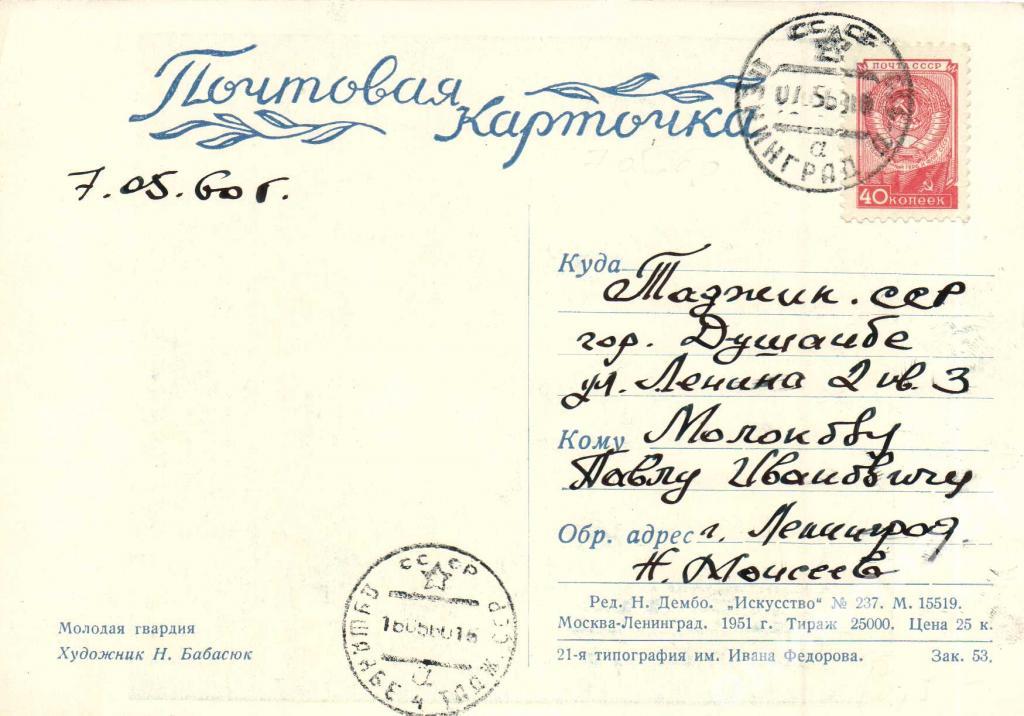 Почтовая
Карточка
СССР
ЛЕНИНГРАД
а
ПОЧТА СССР
40 копеек
7.05.60 г.
Куда Таджик. ССР
гор. Душанбе
ул. Ленина 2 кв. 3
Кому Молокову
Павлу Ивановичу
Обр. адрес г. Ленинград.
Н. Моисеев
Ред. Н. Дембо. „Искусство“ № 237. М. 15519.
Москва-Ленинград. 1951 г. Тираж 25000. Цена 25 к.
21-я типография им. Ивана Федорова. Зак. 53.
Молодая гвардия
Художник Н. Бабасюк
СССР
а